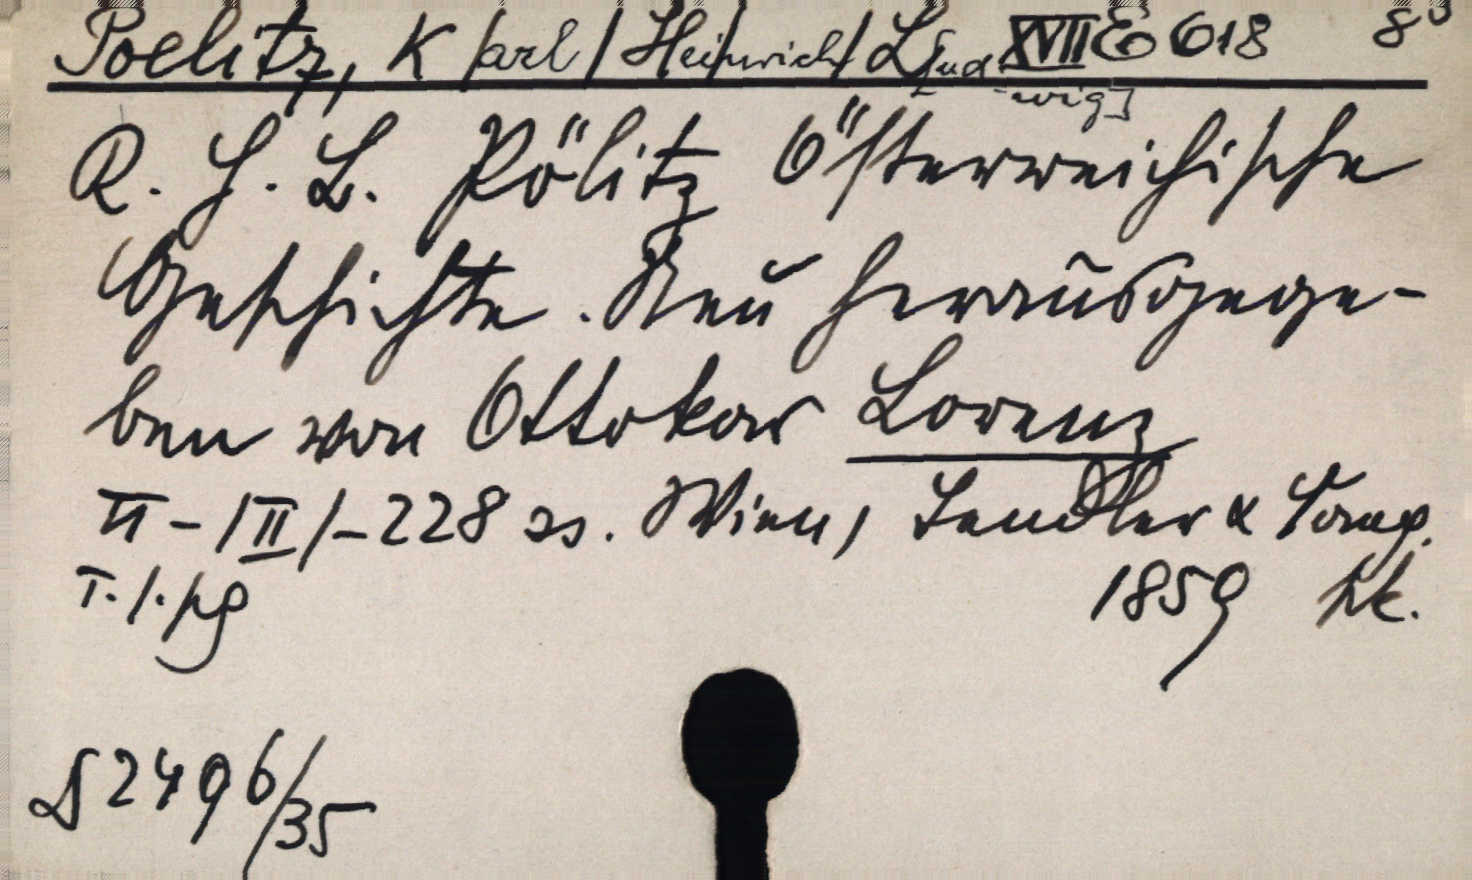 Poelitz, K/arl/ Heinrich/ L[ud- XVII E 618 8°
-wig]
K. H. L. Pölitz Österreichische
Geschichte. Neu herausgege-
ben von Ottokar Lorenz
II-/II/-228 ss. Wien, Sendler & Comp.
1859
S 2496/35